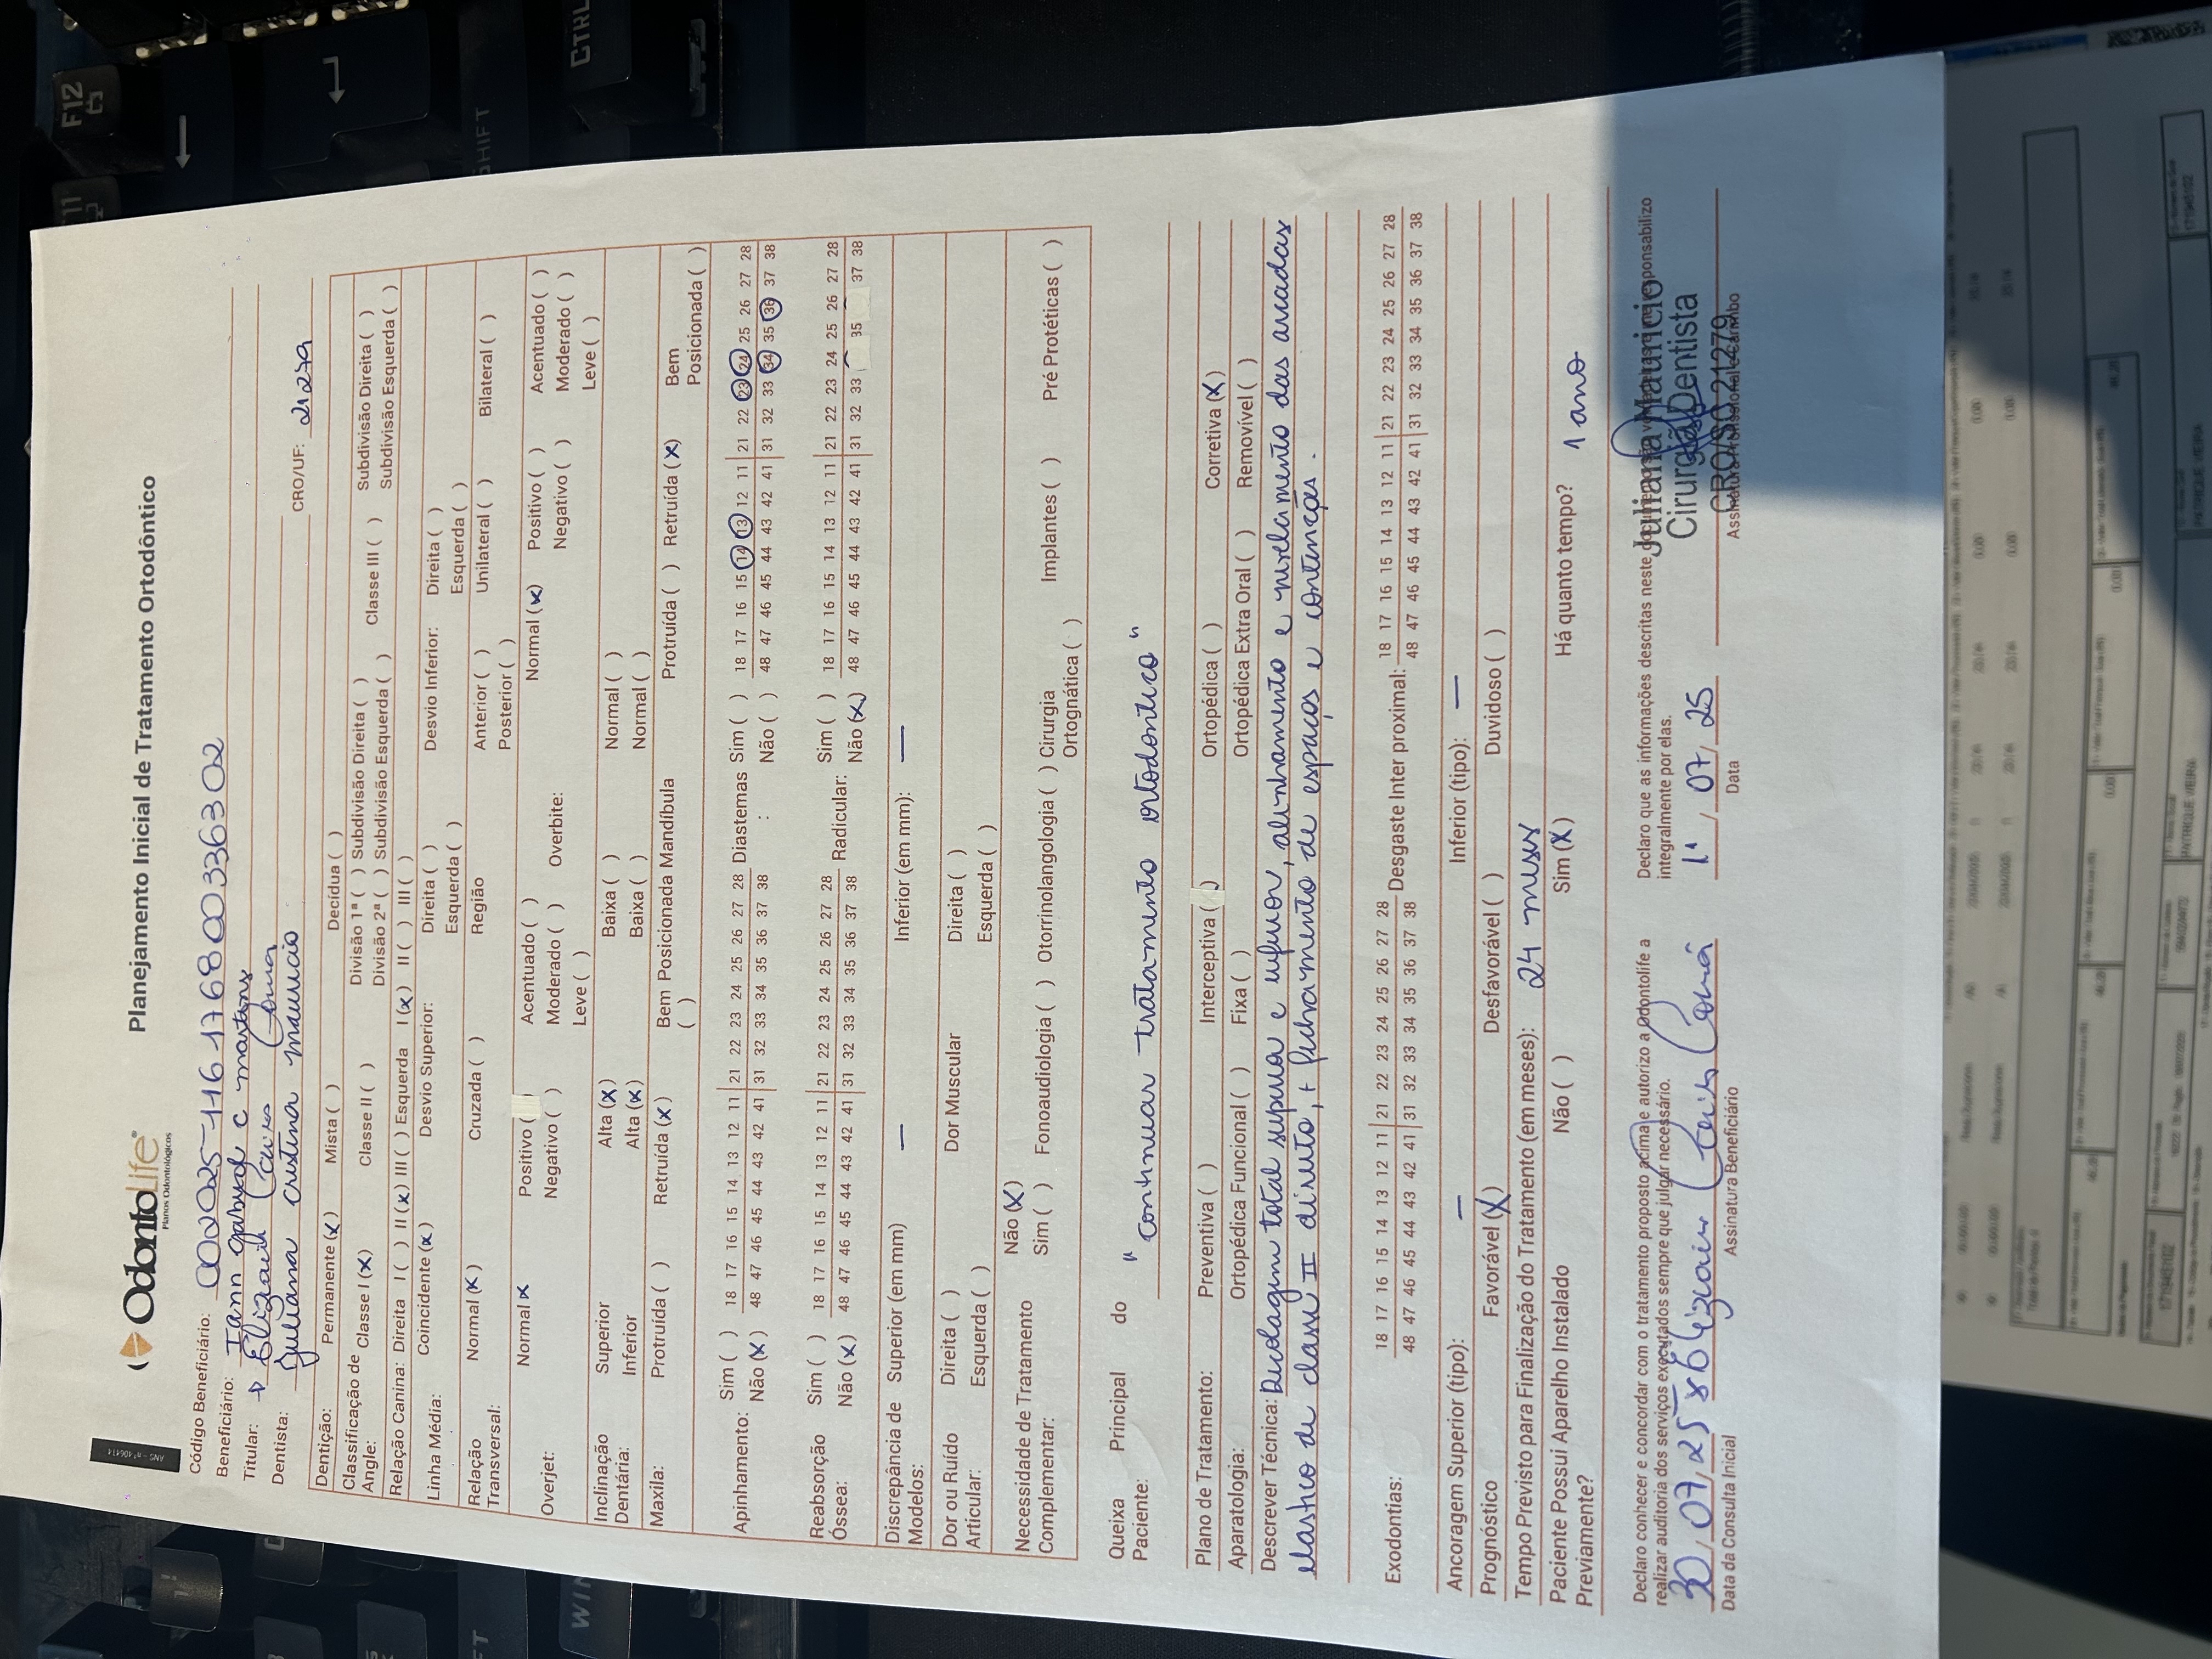 ANS - nº 406414
OdontoLife®
Planos Odontológicos
Planejamento Inicial de Tratamento Ortodôntico
Código Beneficiário: 00202511617680033636302
Beneficiário: Iann Gabriel C Martins
Titular: Elizair
Dentista: Juliana Cristina Mauricio CRO/UF: 21279
Dentição: Permanente (x) Mista ( ) Decídua ( )
Classificação de Angle: Classe I (x) Classe II ( ) Divisão 1ª ( ) Subdivisão Direita ( ) Classe III ( ) Subdivisão Direita ( )
Divisão 2ª ( ) Subdivisão Esquerda ( ) Subdivisão Esquerda ( )
Relação Canina: Direita I ( ) II (x) III ( ) Esquerda I (x) II ( ) III ( )
Linha Média: Coincidente (x) Desvio Superior: Direita ( ) Desvio Inferior: Direita ( )
Esquerda ( ) Esquerda ( )
Relação Transversal: Normal (x) Cruzada ( ) Região Anterior ( ) Unilateral ( ) Bilateral ( )
Posterior ( )
Overjet: Normal x Positivo ( ) Acentuado ( ) Overbite: Normal (x) Positivo ( ) Acentuado ( )
Negativo ( ) Moderado ( ) Negativo ( ) Moderado ( )
Leve ( ) Leve ( )
Inclinação Dentária: Superior Alta (x) Baixa ( ) Normal ( )
Inferior Alta (x) Baixa ( ) Normal ( )
Maxila: Protruída ( ) Retruída (x) Bem Posicionada ( ) Mandíbula Protruída ( ) Retruída (x) Bem Posicionada ( )
Apinhamento: Sim ( ) 18 17 16 15 14 13 12 11 21 22 23 24 25 26 27 28 Diastemas : Sim ( ) 18 17 16 15 14 13 12 11 21 22 23 24 25 26 27 28
Não (x) 48 47 46 45 44 43 42 41 31 32 33 34 35 36 37 38 Não ( ) 48 47 46 45 44 43 42 41 31 32 33 34 35 36 37 38
Reabsorção Óssea: Sim ( ) 18 17 16 15 14 13 12 11 21 22 23 24 25 26 27 28 Radicular: Sim ( ) 18 17 16 15 14 13 12 11 21 22 23 24 25 26 27 28
Não (x) 48 47 46 45 44 43 42 41 31 32 33 34 35 36 37 38 Não (x) 48 47 46 45 44 43 42 41 31 32 33 35 37 38
Discrepância de Modelos: Superior (em mm) — Inferior (em mm): —
Dor ou Ruído Articular: Direita ( ) Dor Muscular Direita ( )
Esquerda ( ) Esquerda ( )
Necessidade de Tratamento Complementar: Não (x)
Sim ( ) Fonoaudiologia ( ) Otorrinolangologia ( ) Cirurgia Ortognática ( ) Implantes ( ) Pré Protéticas ( )
Queixa Principal do Paciente: "Continuar tratamento ortodontico"
Plano de Tratamento: Preventiva ( ) Interceptiva ( ) Ortopédica ( ) Corretiva (x)
Aparatologia: Ortopédica Funcional ( ) Fixa ( ) Ortopédica Extra Oral ( ) Removível ( )
Descrever Técnica: Decolagem total superior e inferior, alinhamento e nivelamento das arcadas
elastico de classe II direito, + fechamento de espaços e contenções.
Exodontias: 18 17 16 15 14 13 12 11 21 22 23 24 25 26 27 28 Desgaste Inter proximal: 18 17 16 15 14 13 12 11 21 22 23 24 25 26 27 28
48 47 46 45 44 43 42 41 31 32 33 34 35 36 37 38 48 47 46 45 44 43 42 41 31 32 33 34 35 36 37 38
Ancoragem Superior (tipo): — Inferior (tipo): —
Prognóstico Favorável (X) Desfavorável ( ) Duvidoso ( )
Tempo Previsto para Finalização do Tratamento (em meses): 24 meses
Paciente Possui Aparelho Instalado Previamente? Não ( ) Sim (X) Há quanto tempo? 1 ano
Declaro conhecer e concordar com o tratamento proposto acima e autorizo a Odontolife a
realizar auditoria dos serviços executados sempre que julgar necessário.
Declaro que as informações descritas neste responsabilizo
integralmente por elas.
30, 07, 25 x Elizair
Data da Consulta Inicial Assinatura Beneficiário
1º, 07, 25
Data
Juliana Mauricio
Cirurgiã Dentista
CRO/SC 21279
F12
F11
SHIFT
CTRL
WIN